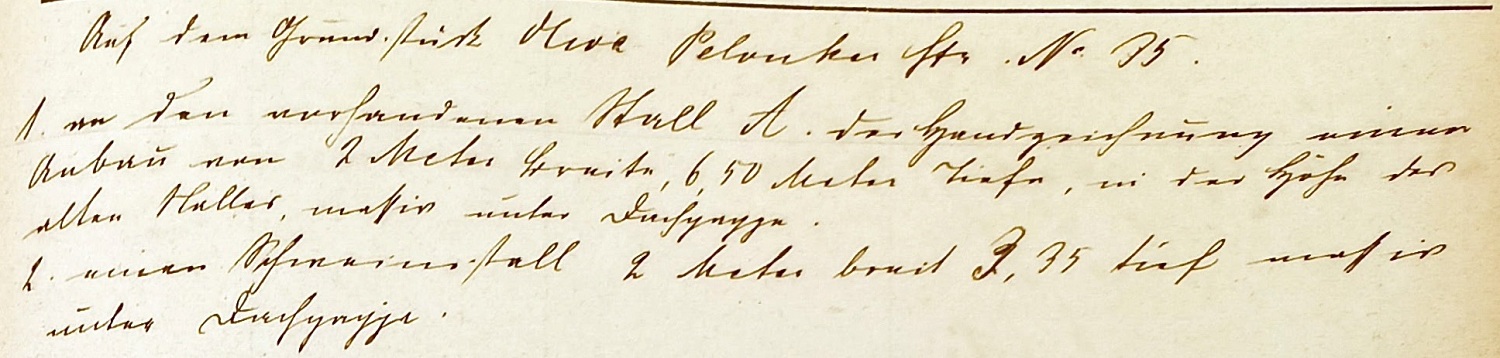 Auf dem Grundstück Oliva Pelonker Str. No. 35.
1. an den vorhandenen Stall A. der Handzeichnung einen
Anbau von 2 Meter Breite, 6,50 Meter Tiefe, in der Höhe des
alten Stalles, massiv unter Dachpappe.
2. einen Schweinestall 2 Meter breit 3,35 tief massiv
unter Dachpappe.